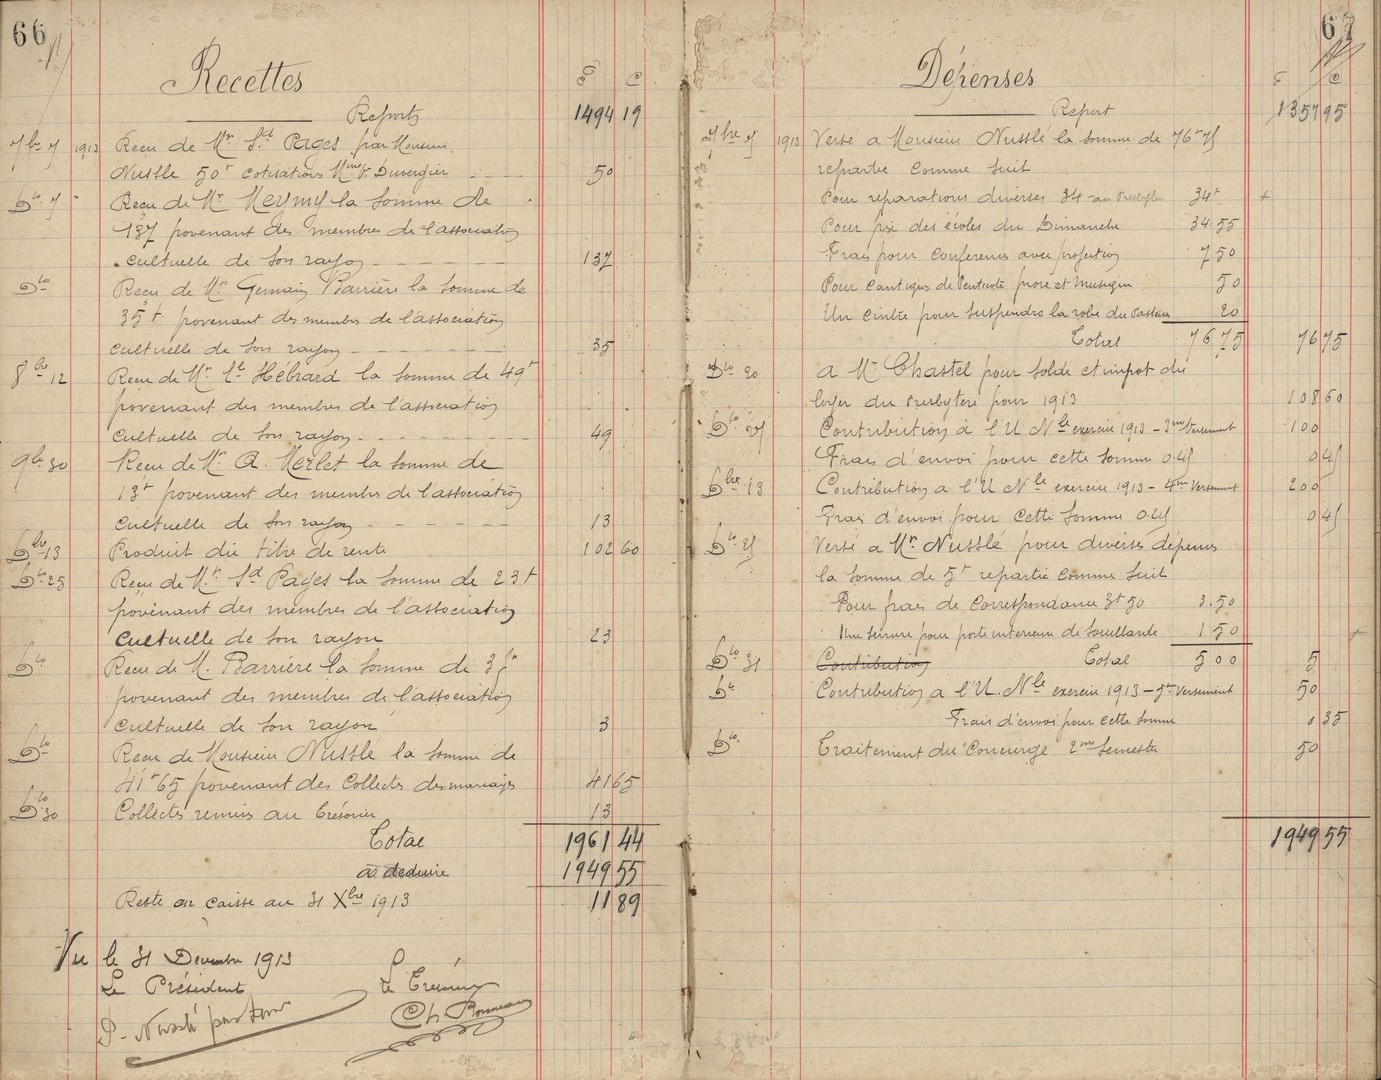 66
Recettes
F C
Reports 1494 19
7bre 7 1913 Reçu de Mr Sd Pagès par Monsieur
Nusslé 50f cotisations Mme Vve Duvergier 50
Dto 7 Reçu de Mr Meymy la somme de
137 provenant des membres de l'association
cultuelle de son rayon 137
Dto Reçu de Mr Germain Barrière la somme de
35f provenant des membres de l'association
cultuelle de son rayon 35
8bre 12 Reçu de Mr Hébrard la somme de 49f
provenant des membres de l'association
cultuelle de son rayon 49
9bre 30 Reçu de Mr A. Merlet la somme de
13f provenant des membres de l'association
cultuelle de son rayon 13
13 Produit du titre de rente 102 60
Dto 25 Reçu de Mr Sd Pagès la somme de 23f
provenant des membres de l'association
cultuelle de son rayon 23
Dto Reçu de M. Barrière la somme de 3f
provenant des membres de l'association
cultuelle de son rayon 3
Dto Reçu de Monsieur Nusslé la somme de
41f 65 provenant des Collectes des mariages 41 65
Dto 30 Collectes remises au Trésorier 13
Total 1961 44
à déduire 1949 55
Reste en caisse au 31 Xbre 1913 11 89
Vu le 31 Décembre 1913
Le Président Le Trésorier
P. Nusslé pasteur Ch
67
Dépenses
F C
Report 1357 95
7bre 7 1913 Versé à Monsieur Nusslé la somme de 76f 75
répartie comme suit
Pour réparations diverses 34 au Presbytère 34f +
Pour prix des écoles du Dimanche 34.55
Frais pour conférences avec projection 7 50
Pour Cantiques de Pentecôte prose et musique 50
Un cintre pour suspendre la robe du Pasteur 20
Total 76 75 76 75
Dto 20 à Mr Chastel pour solde et impot du
loyer du Presbytère pour 1913 108 60
Contribution à l'U Nle exercice 1913 - 3me Versement 100
Frais d'envoi pour cette somme 0.45 0 45
13 Contribution à l'U Nle exercice 1913 - 4me Versement 200
Frais d'envoi pour cette somme 0.45 0 45
Dto 25 Versé à Mr Nusslé pour diverses dépenses
la somme de 5f répartie comme suit
Pour frais de correspondance 3f 50 3.50
Une serrure pour porte intérieure de 1 50
Dto 31 Contribution Total 5 00 5
Dto Contribution à l'U. Nle exercice 1913 - 5me Versement 50
Frais d'envoi pour cette somme 35
Dto Traitement du Concierge 2me Semestre 50
1949 55